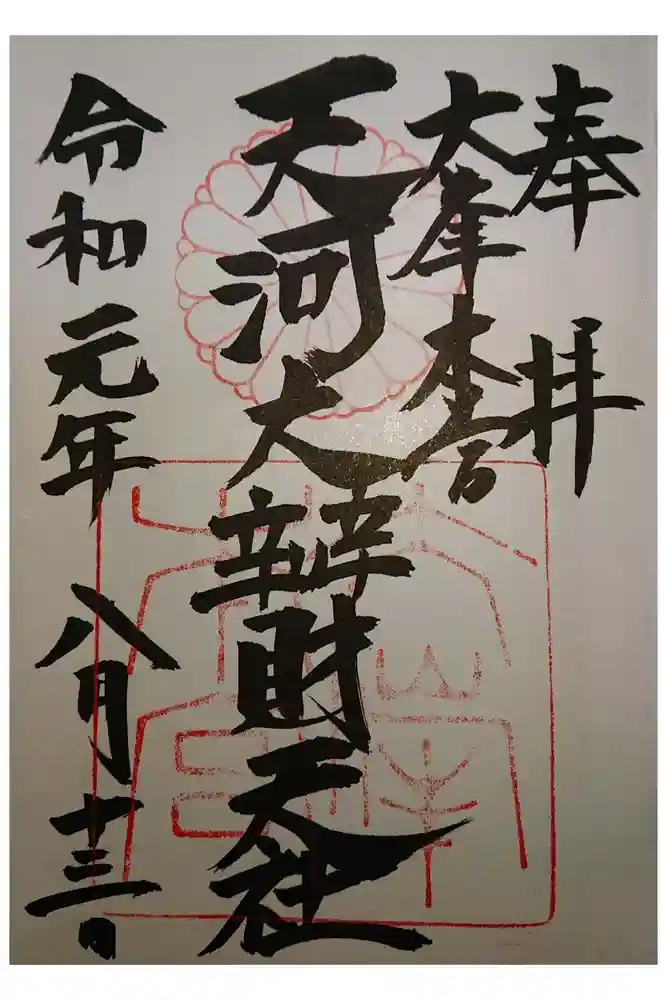 奉拝
大峯本宮
天河大辨財天社
令和元年八月十三日